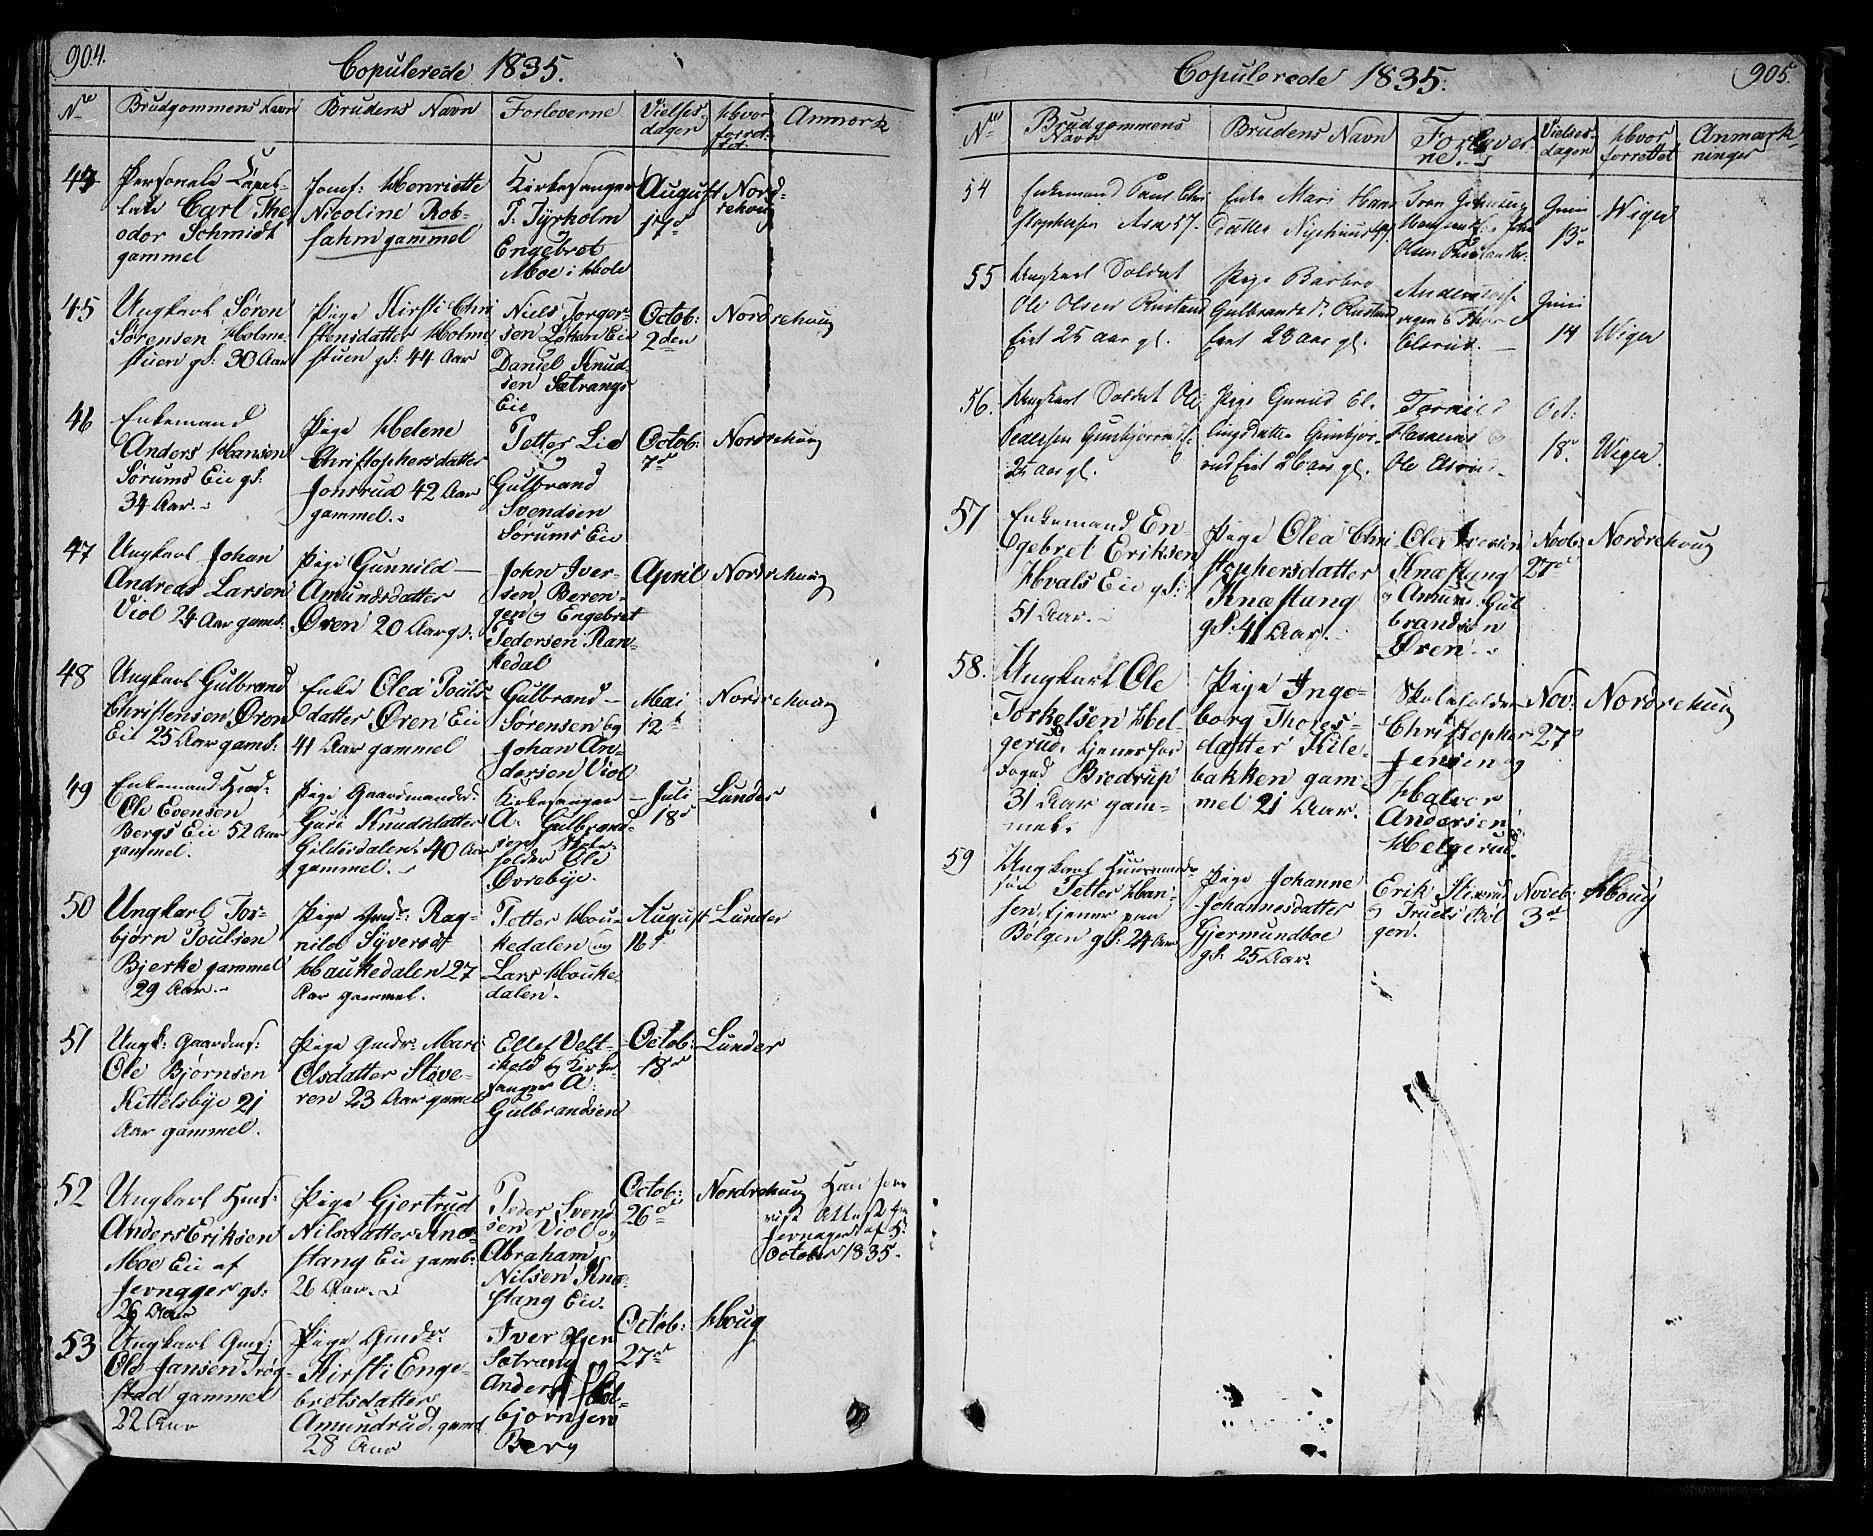 904.
Copulerede 1835.
No
Brudgommens Navn
Brudens Navn
Forloverne
Vielses-
dagen
Hvor
forret-
tet.
Anmærk
44
Personele Capel-
lan Carl The-
odor Schmidt
gammel
Jomf: Henriette
Nicoline Rob-
sahm gammel
Kirkesanger
J. Tyrholm
Engebret
Moe i Hole
August
Nord-
rehoug
45
Ungkarl Søren
Sørensen Holme
stuen gl: 30 Aar
Pige Kirsti Chri
stensdatter Holme
stuen gl: 44 Aar
Niels Torger-
sen Løken Eie
Daniel Knud-
sen Sætrangs
Eie
Octob:
2den
Nordrehoug
46
Enkemand
Anders Hansen
Sørums Eie gl:
34 Aar.
Pige Helene
Christophersdatter
Jonsrud 42 Aar
gammel.
Petter Lie
og
Gulbrand
Svendsen
Sørums Eie
Octob:
7de
Nordrehoug
47
Ungkarl Johan
Andreas Larsen
Viol 24 Aar gaml:
Pige Gunnild
Amundsdatter
Øren 20 Aar gl:
John Iver-
sen Beren-
gen og Engebret
Pedersen Ran-
kedal
April
Nordrehoug
48
Ungkarl Gulbrand
Christensen Øren
Eie 25 Aar gaml:
Enke Olea Pouls
datter Øren Eie
41 Aar gammel
Gulbrand
Sørensen og
Johan An-
dersen Viol
Mai
12te
Nordrehoug
49
Enkemand Huus-
Ole Evensen
Bergs Eie 52 Aar
gammel.
Pige Gaardmandsd:
Guri Knudsdatter
40 Aar
gammel.
Kirkesanger
A. Gulbrand-
sen Skole-
holder Ole
Øvrebye.
Juli
18de
Lunder
50
Ungkarl Tor-
bjørn Poulsen
Bjerke gammel
29 Aar.
Pige Gmdr: Rag-
nild Syversdt
Haukedalen 27
Aar gammel.
Petter Hou-
kedalen og
Lars Houke
dalen.
August
16de
Lunder
51
Ungk: Gaardms:
Ole Bjørnsen
Kittelsbye 21
Aar gammel.
Pige Gmdr: Mari
Olsdatter Stave-
ren 23 Aar gamel
Ellef Velt-
og Kirke-
sanger A.
Gulbrandsen
Octob:
18de
Lunder
52
Ungkarl Hms:
Anders Eriksen
Moe Eie af
Jevnager gl:
26 Aar
Pige Gjertrud
Nilsdatter Knæ-
stang Eie gaml:
26 Aar.
Peder Svend
sen Viol og
Abraham
Nilsen Knæ-
stang Eie.
Octob:
26de
Nordrehoug
Han fore
vist Attest fra
Jevnager af 5
October 1835.
53
Ungkarl Gms:
Ole Jansen Trøg-
stad gammel
22 Aar
Pige Gmdr:
Kirsti Enge-
bretsdatter
Amundrud gaml
28 Aar
Iver Olsen
Sætrang
Anders
bjørnsen
Berg
Octob:
27de
Houg
905.
Copulerede 1835.
No
Brudgommens
Navn
Brudens Navn
Forlover
ne.
Vielses-
dagen
Hvor
forrettet
Anmærk-
ninger
54
Enkemand Paul Chri
stophersen
Enke Mari Hans
datter
Juni
13de
Wiger
55
Ungkarl Soldat
Ole Olsen Rustand
Eiet 25 aar gl.
Pige Barbro
Gulbrandsd. Rustand
Eiet 28 aar gl.
Juni
14
Wiger
56.
Ungkarl Soldat Ole
Pedersen
25 aar gl.
Pige Gunild El-
lingsdatter Gunbjør-
rud Eiet 26 aar gl.
Oct:
18de
Wiger
57
Enkemand En
gebret Eriksen
Hvals Eie gl:
51 Aar.
Pige Olea Chri
stophersdatter
Knæstang
gl: 41 Aar.
Ole Iversen
Knæstang
og Amund Gul
brandsen
Øren
Novb:
27de
Nordrehoug
58.
Ungkarl Ole
Torkelsen Hel-
gerud, tjener hos
Foged Bredrup
31 Aar gam-
mel.
Pige Inge-
borg Thores-
datter Kile-
bakken gam-
mel 21 Aar.
Skoleholder
Christopher
Jensen og
Halvor
Andersen
Helgerud.
Nov:
27de
Nordrehoug
59
Ungkarl Huusmands-
søn Petter Han-
sen, tjener paa
Bølgen gl: 24 Aar
Pige Johanne
Johannesdatter
Gjermundboe
gl: 25 Aar.
Erik Stixrud
og Truels Bøl
gen.
Noveb:
3de
Houg